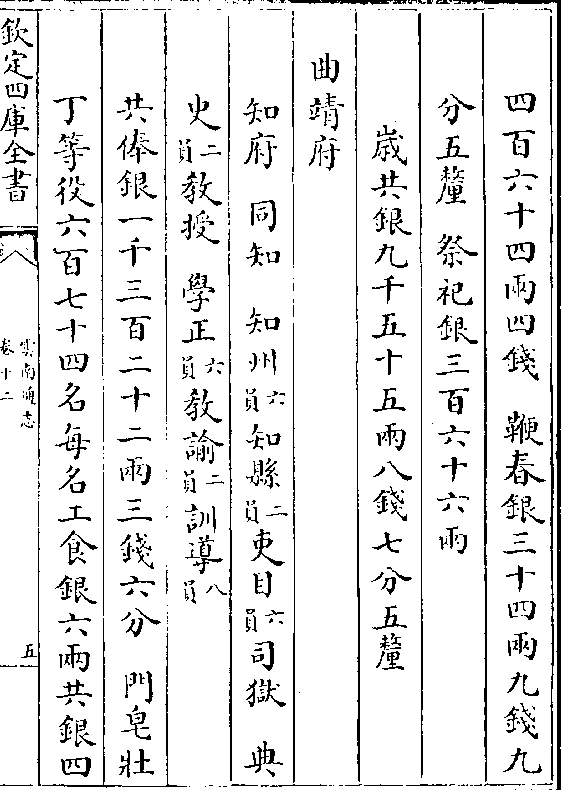 四百六十四兩四錢　鞭春銀三十四兩九錢九
分五釐　祭祀銀三百六十六兩
歲共銀九千五十五兩八錢七分五釐
曲靖府
知府　同知　知州六員知縣二員吏目六員司獄　典
史二員教授　學正六員教諭二員訓導八員
共俸銀一千三百二十二兩三錢六分　門皂壯
丁等役六百七十四名每名工食銀六兩共銀四
欽定四庫全書
雲南通志
卷十二
五